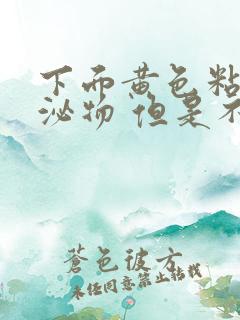 下面黄色粘
泌物 但是不
蒼色彼方
未经同意禁止转载